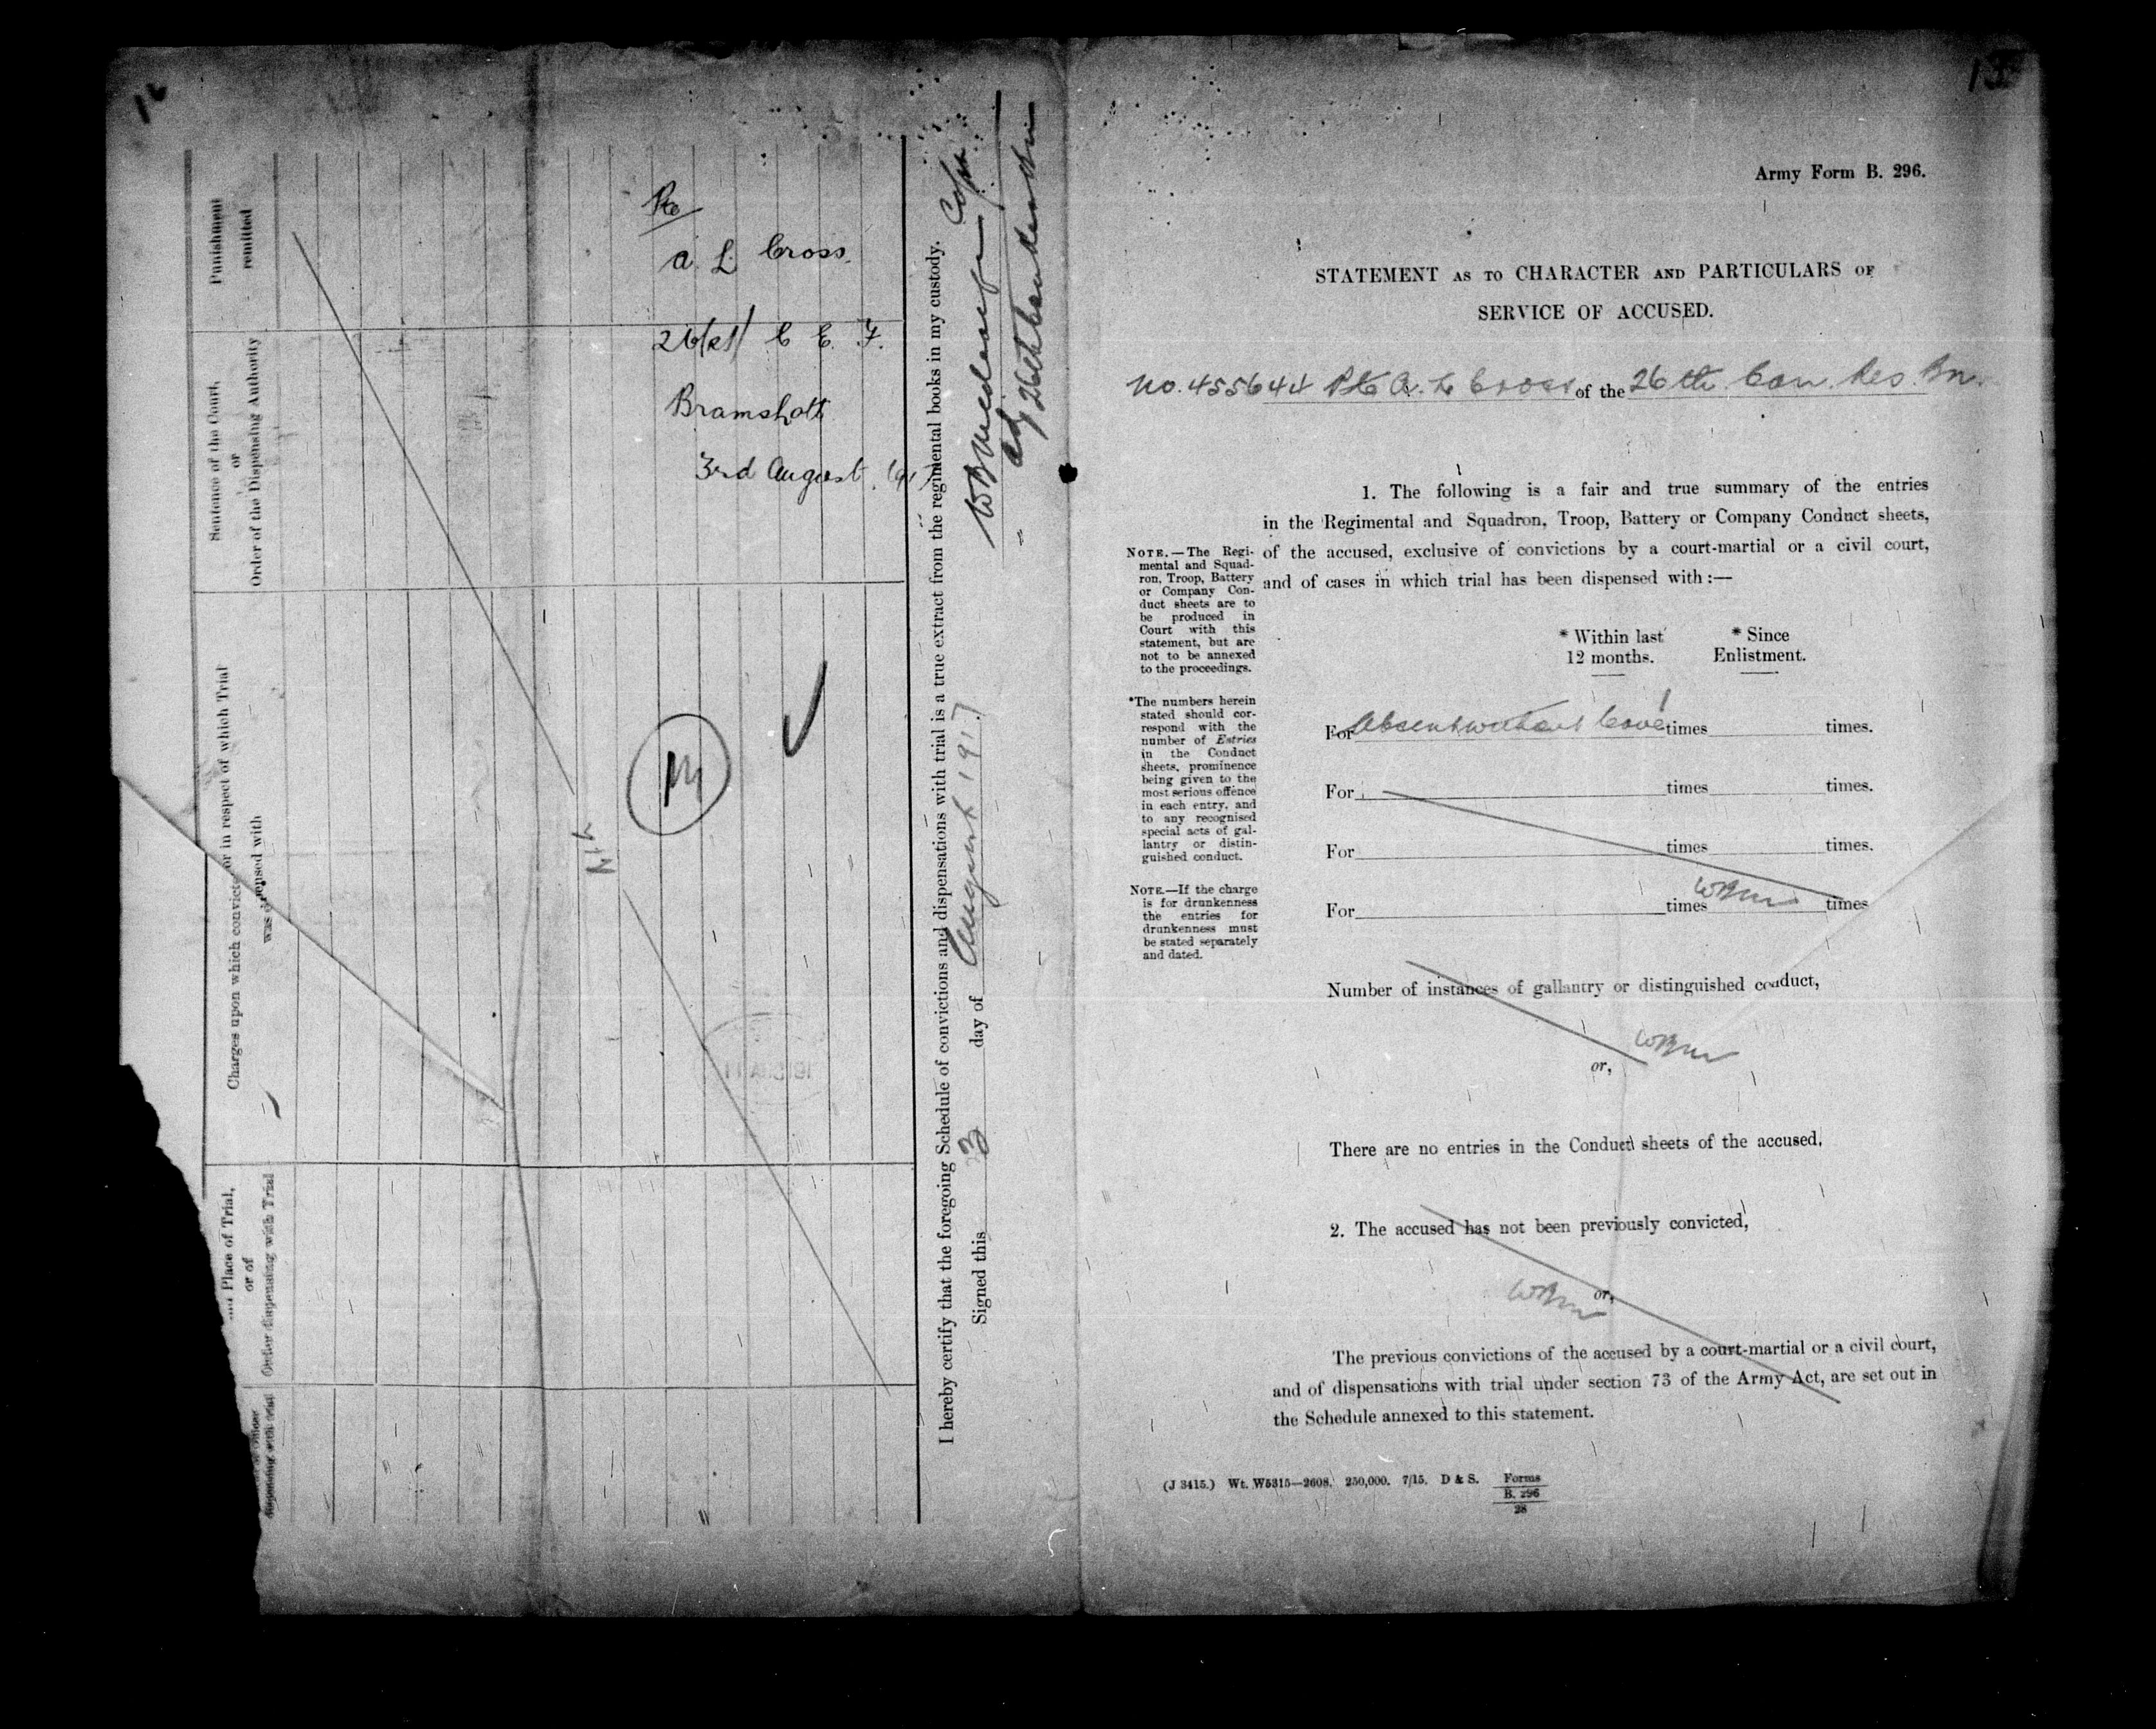 Punishment
remitted
Sentence of the Court,
or
Order of the Dispensing Authority
Charges upon which convicted or in respect of which Trial
was dispensed with
Place of Trial,
or of
Order dispensing with Trial
Pte
A. L. Cross.
C. E. F.
Bramshott
3rd August. 1917
M
I hereby certify that the foregoing Schedule of convictions and dispensations with trial is a true extract from the regimental books in my custody.
Signed this 3 day of August 1917
Capt
13
Army Form B. 296.
STATEMENT AS TO CHARACTER AND PARTICULARS OF
SERVICE OF ACCUSED.
No. 455644 Pte A. L Cross of the 26th Can. Res. Bn.
1. The following is a fair and true summary of the entries
in the Regimental and Squadron, Troop, Battery or Company Conduct sheets,
of the accused, exclusive of convictions by a court-martial or a civil court,
and of cases in which trial has been dispensed with :—
NOTE.—The Regi-
mental and Squad-
ron, Troop, Battery
or Company Con-
duct sheets are to
be produced in
Court with this
statement, but are
not to be annexed
to the proceedings.
*The numbers herein
stated should cor-
respond with the
number of Entries
in the Conduct
sheets, prominence
being given to the
most serious offence
in each entry, and
to any recognised
special acts of gal-
lantry or distin-
guished conduct.
NOTE.—If the charge
is for drunkenness
the entries for
drunkenness must
be stated separately
and dated.
* Within last * Since
12 months. Enlistment.
For Absent without leave 1 times times.
For times times.
For times times.
For times times
Number of instances of gallantry or distinguished conduct,
or,
There are no entries in the Conduct sheets of the accused,
2. The accused has not been previously convicted,
or,
The previous convictions of the accused by a court-martial or a civil court,
and of dispensations with trial under section 73 of the Army Act, are set out in
the Schedule annexed to this statement.
(J 3415.) Wt. W5315—2608. 250,000. 7/15. D & S. Forms
B. 296
28